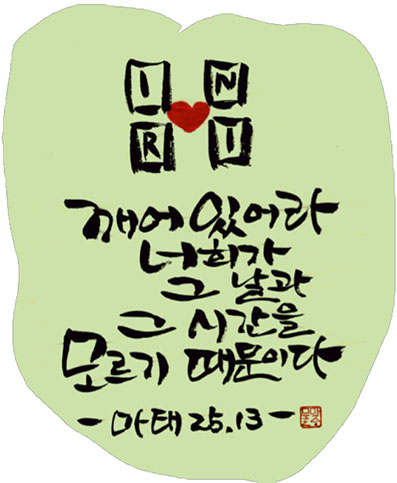 I N
R I
깨어 있어라
너희가
그 날과
그 시간을
모르기 때문이다
- 마태 25.13 -